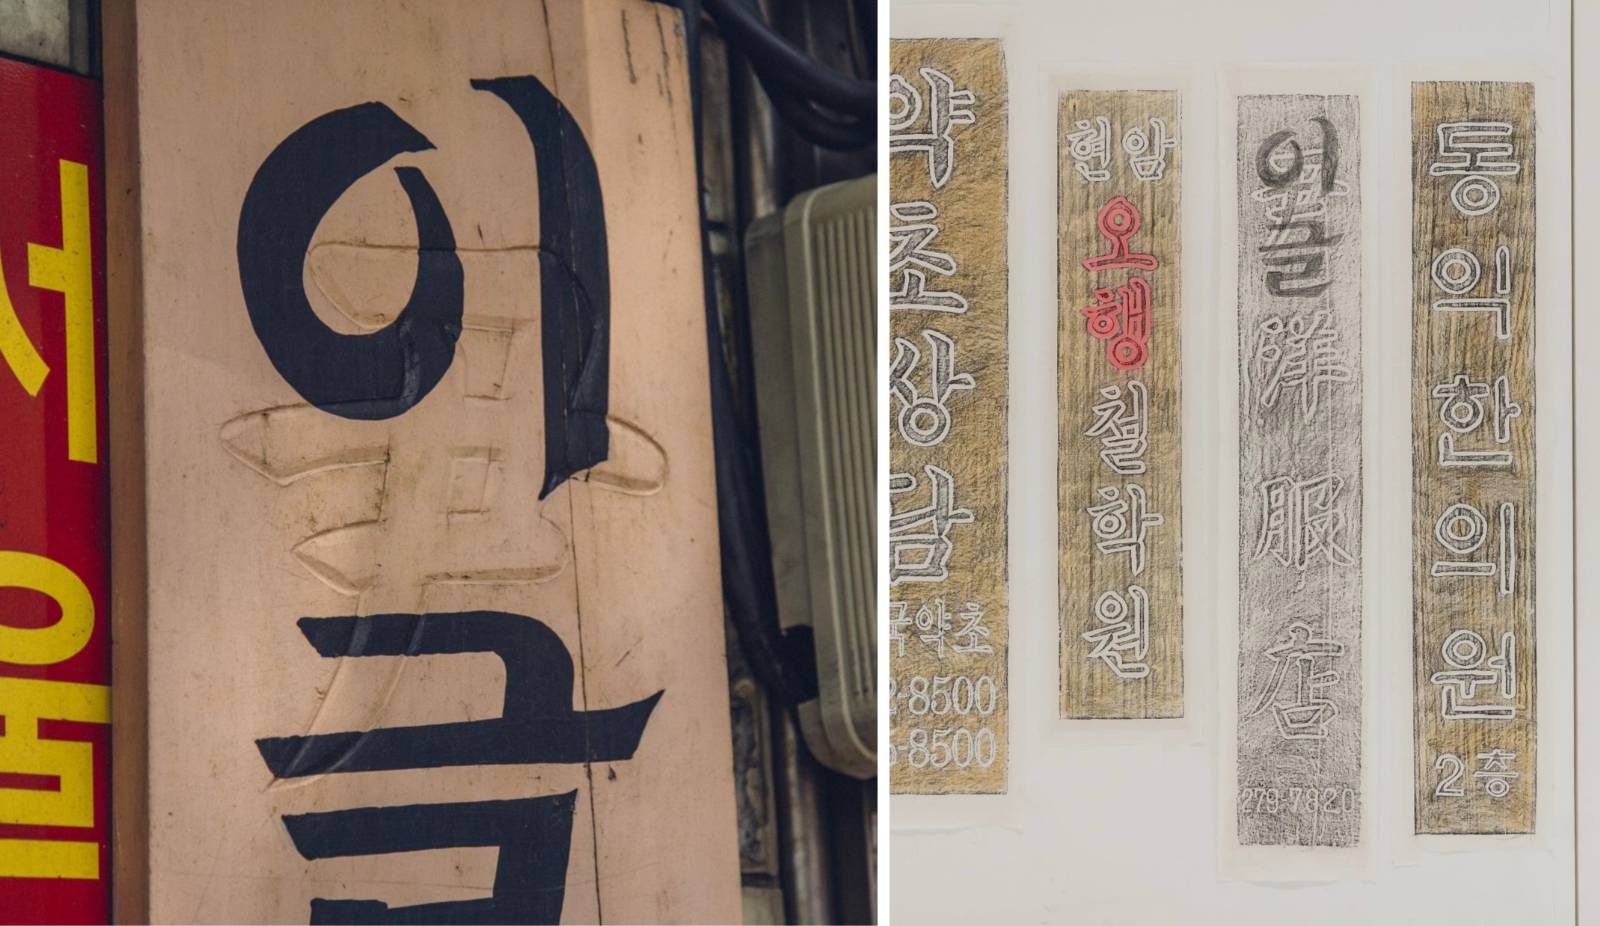 이글
약초상담
약초
-8500
-8500
현암
오행철학원
이글
洋服店
279-7820
동익한의원
2층